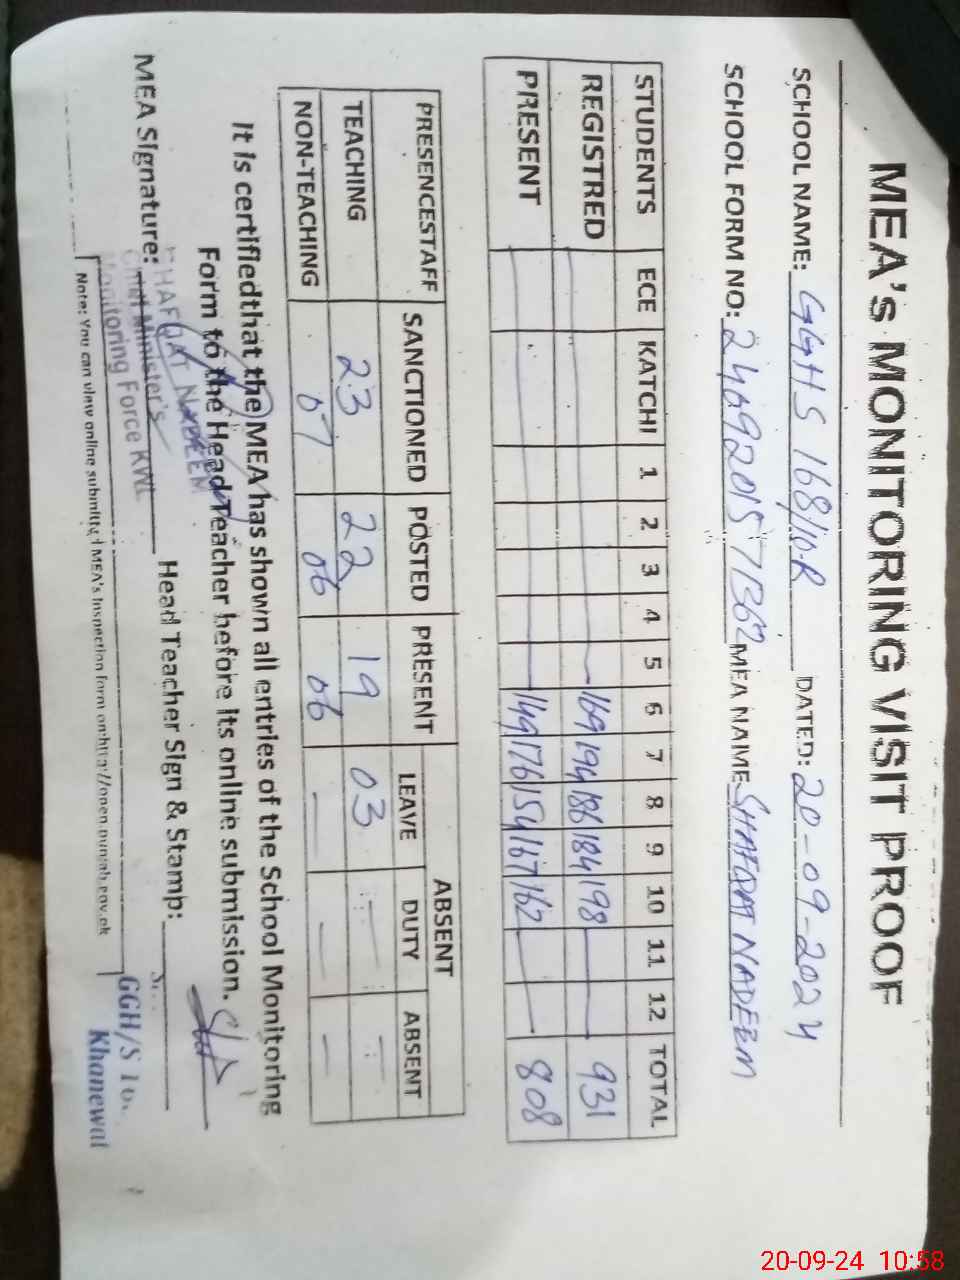 MEA's MONITORING VISIT PROOF
SCHOOL NAME: GGHS 168/10-R DATED: 20-09-2024
SCHOOL FORM NO: MEA NAME SHAFQAT NADEEM
STUDENTS ECE KATCHI 1 2 3 4 5 6 7 8 9 10 11 12 TOTAL
REGISTRED 169 194 186 184 198 931
PRESENT 149 176 154 167 162 808
PRESENCESTAFF SANCTIONED POSTED PRESENT ABSENT
LEAVE DUTY ABSENT
TEACHING 23 22 19 03
NON-TEACHING 07 06 06 — — —
It is certifiedthat the MEA has shown all entries of the School Monitoring
Form to the Head Teacher before its online submission.
MEA Signature: Head Teacher Sign & Stamp:
SHAFQAT NADEEM
Chief Minister's
Monitoring Force KWL
Note: You can view online submitted MEA's Inspection form on:http://open.punjab.gov.pk
GGH/S
Khanewal
20-09-24 10:58